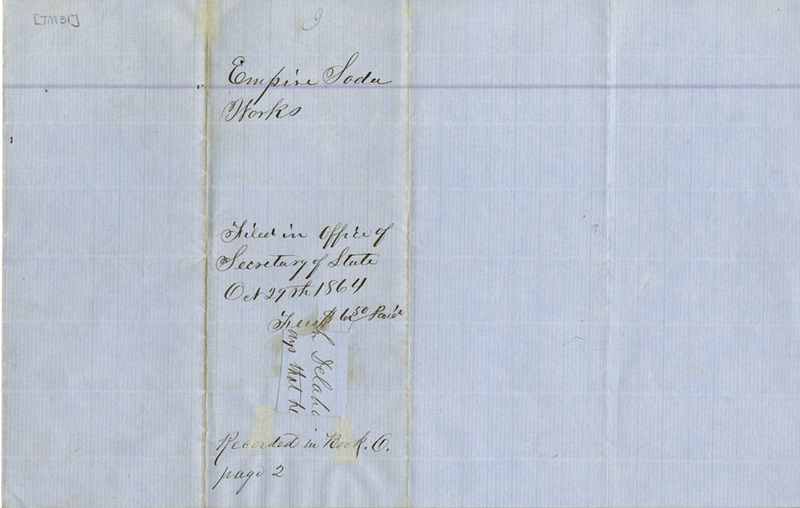 [TM31]
Empire Soda
Works
Filed in Office of
Secretary of State
Oct 29th 1864
Fees $6 50 Paid
h Delaha
ays that he
Recorded in Book. O.
page 2